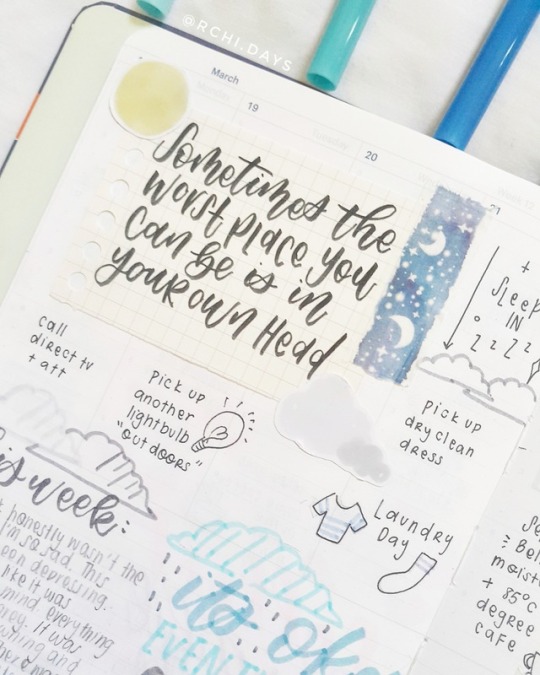 @RCHI.DAYS
March
19
20
21
Sometimes the
worst place you
can be is in
your own Head
+
SLEEP
IN
zzzz
call
direct tv
+ att
Pick up
another
lightbulb
"out doors"
Pick up
dry clean
dress
Laundry
Day
week:
honestly wasn't the
I'm so sad. This
depressing.
like it was
mind. everything
It was
and
its okay
EVEN
+ 85°C
degree
cafe